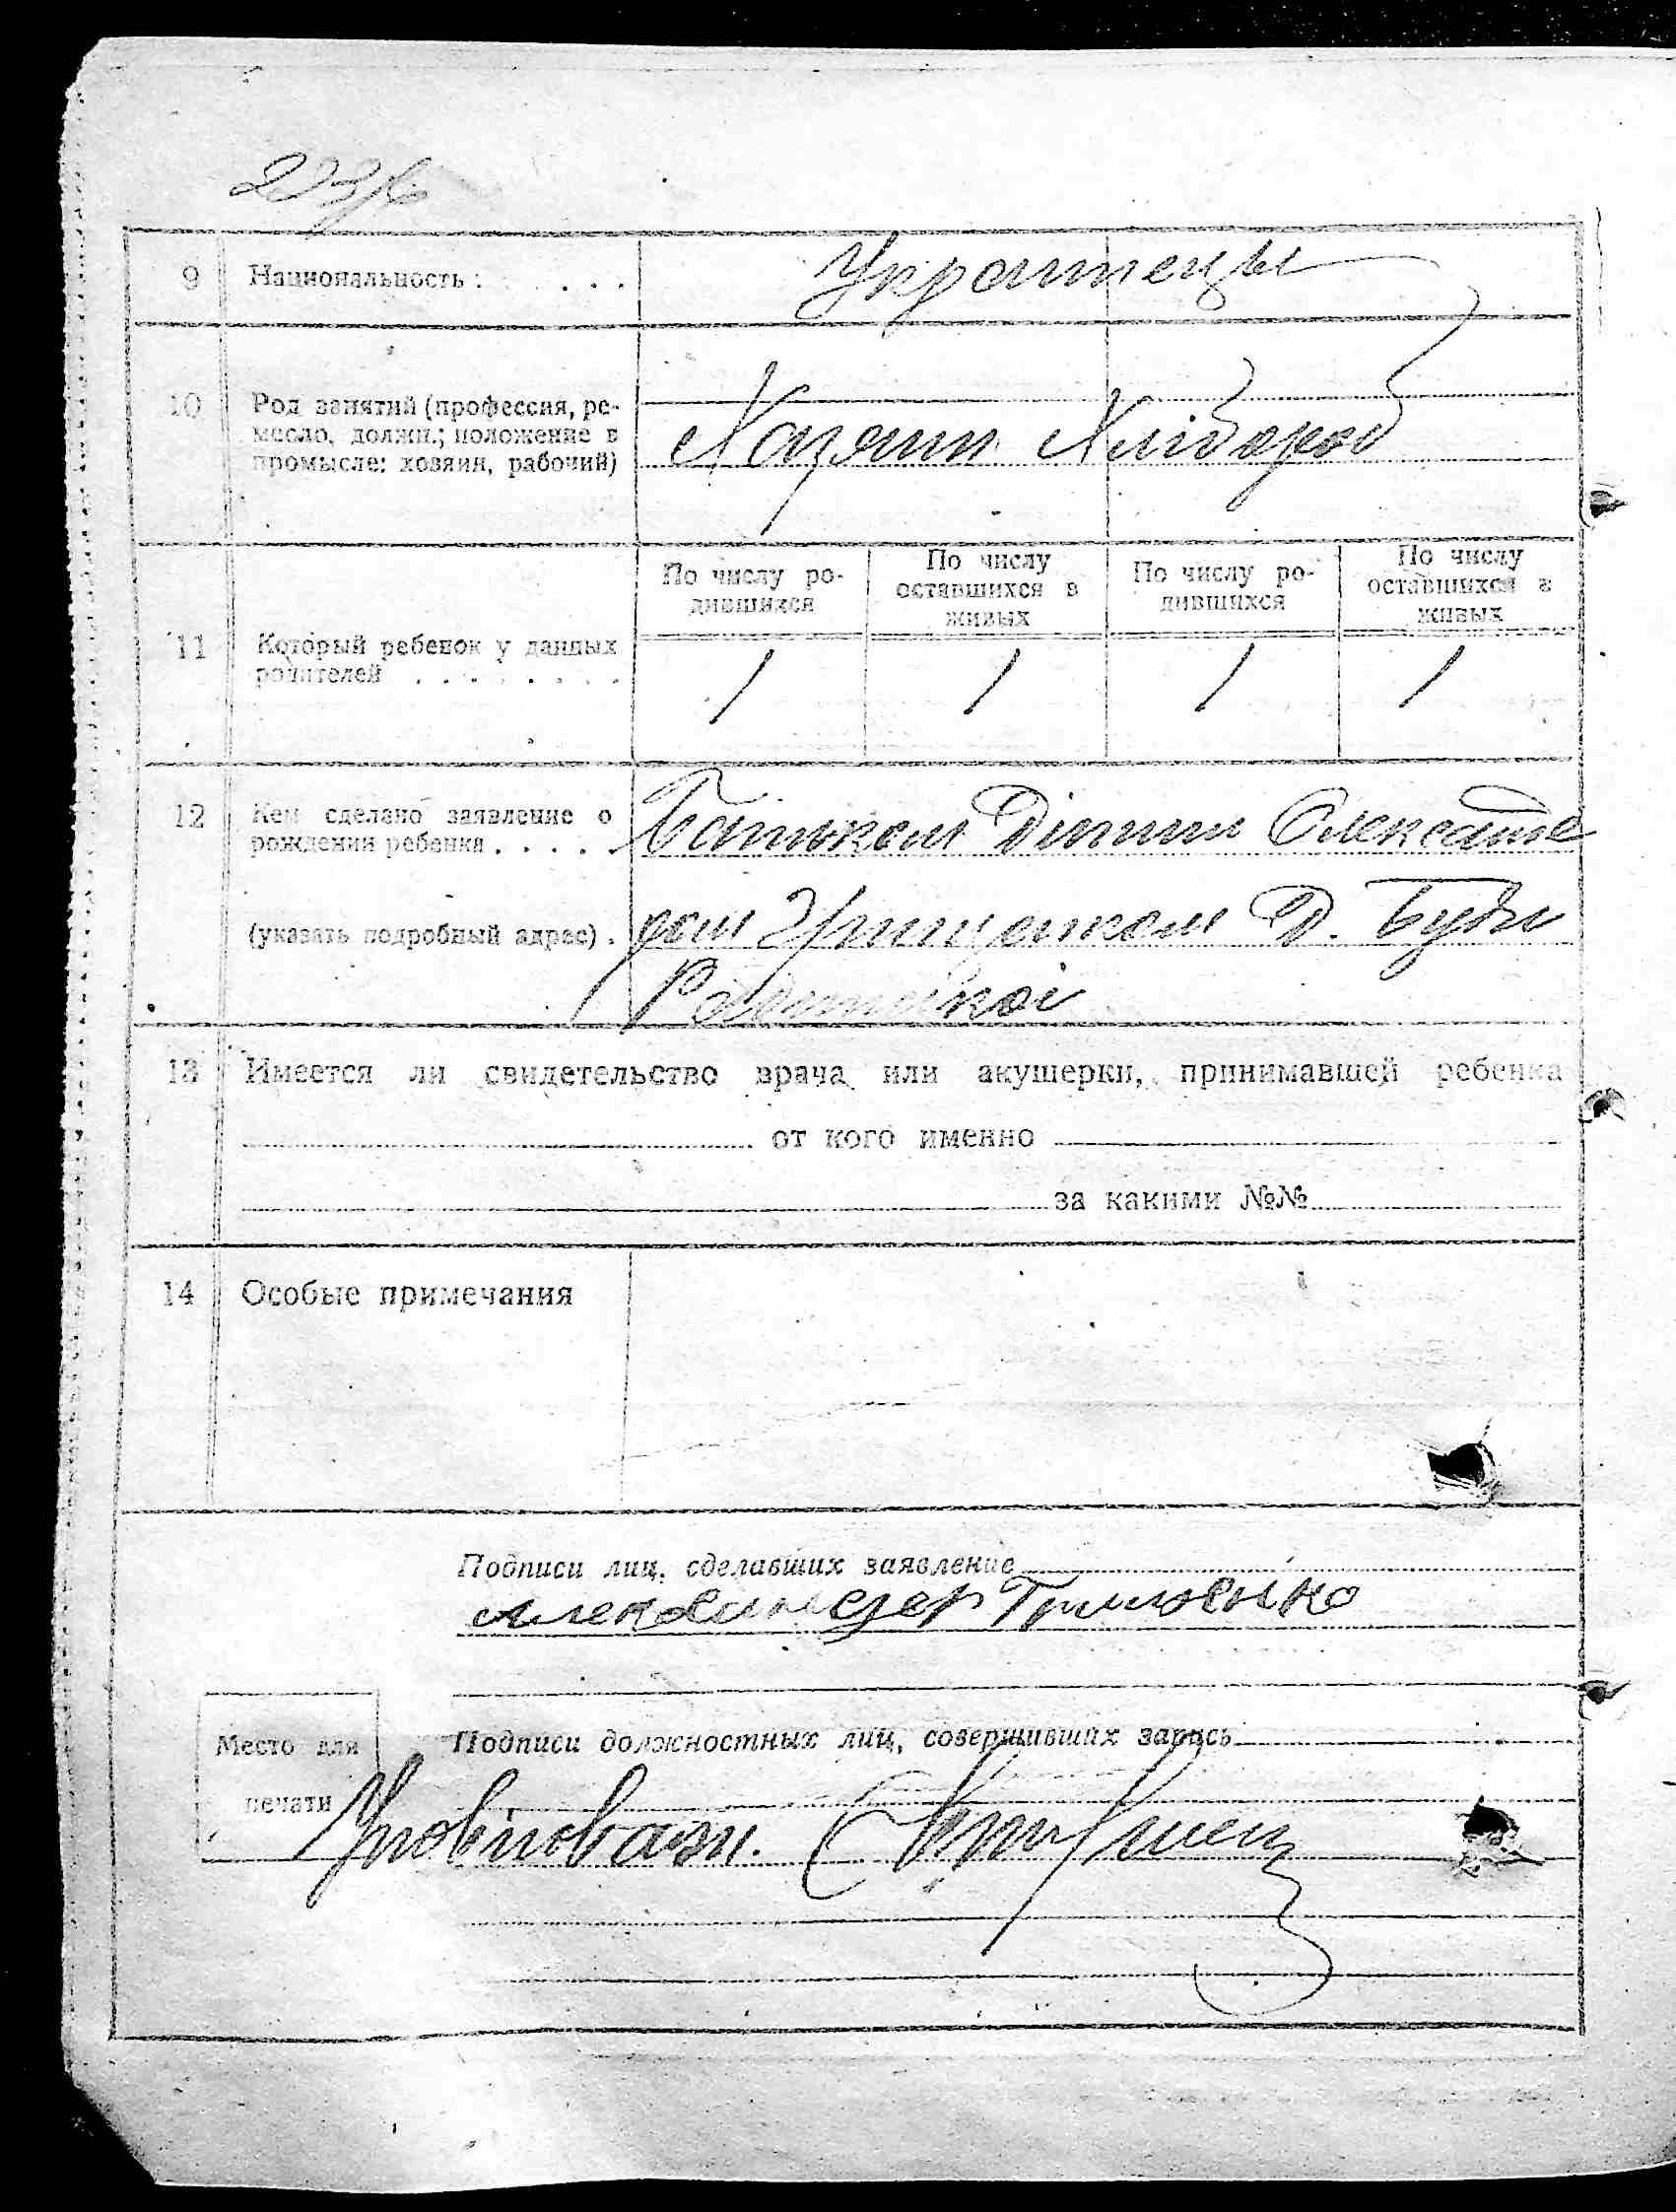 9 Национальность: . . . Украинецы
10 Род занятий (профессия, ре-
месло, должн.; положение в
промысле: хозяин, рабочий)
Хазяин Хлібороб
По числу ро-
дившихся
По числу
оставшихся в
живых
По числу ро-
дившихся
По числу
оставшихся в
живых
11 Который ребенок у данных
родителей . . . . . . . .
1 1 1 1
12 Кем сделано заявление о
рождении ребенка . . . . .
Батьком Дитини Олександ
(указать подробный адрес) .
ром Грищенком Д. Буды
13 Имеется ли свидетельство врача или акушерки, принимавшей ребенка
от кого именно
за какими №№
14 Особые примечания
Подписи лиц, сделавших заявление
Александер
Подписи должностных лиц, совершивших запись
Место для
печати